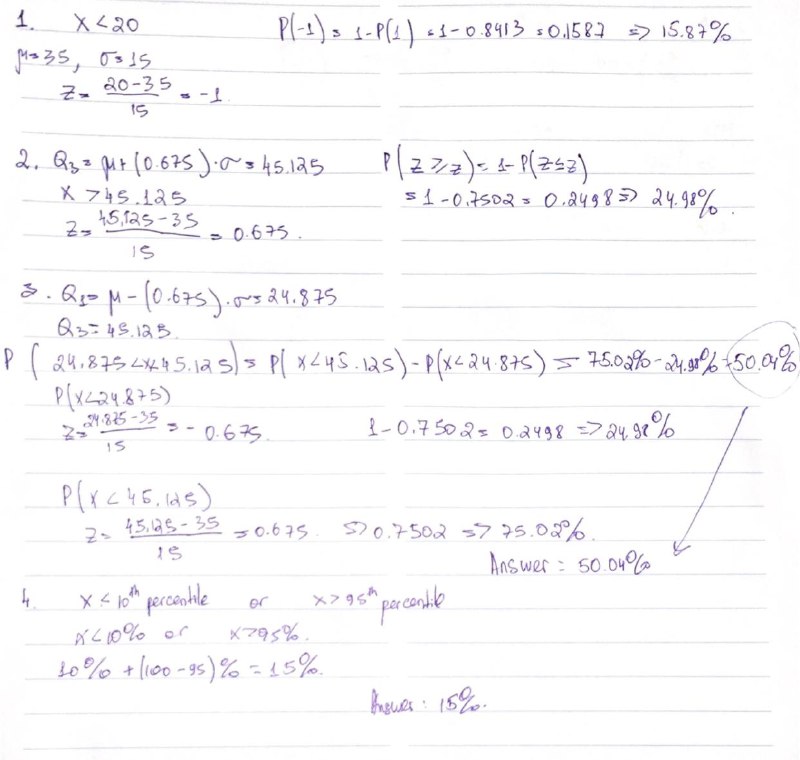 1. X < 20
P(-1) = 1 - P(1) = 1 - 0.8413 = 0.1587 => 15.87%
μ = 35, σ = 15
Z = (20 - 35)/15 = -1
2. Q₃ = μ + (0.675) · σ = 45.125
P(Z ≥ z) = 1 - P(Z ≤ z)
X > 45.125
= 1 - 0.7502 = 0.2498 => 24.98%.
Z = (45.125 - 35)/15 = 0.675.
3. Q₁ = μ - (0.675) · σ = 24.875
Q₃ = 45.125.
P(24.875 < x < 45.125) = P(x < 45.125) - P(x < 24.875) = 75.02% - 24.98% = 50.04%
P(x < 24.875)
Z = (24.875 - 35)/15 = -0.675.
1 - 0.7502 = 0.2498 => 24.98%
P(X < 45.125)
Z = (45.125 - 35)/15 = 0.675. => 0.7502 => 75.02%.
Answer = 50.04%
4. X < 10th percentile or X > 95th percentile
X < 10% or X > 95%.
10% + (100 - 95)% = 15%.
Answer: 15%.